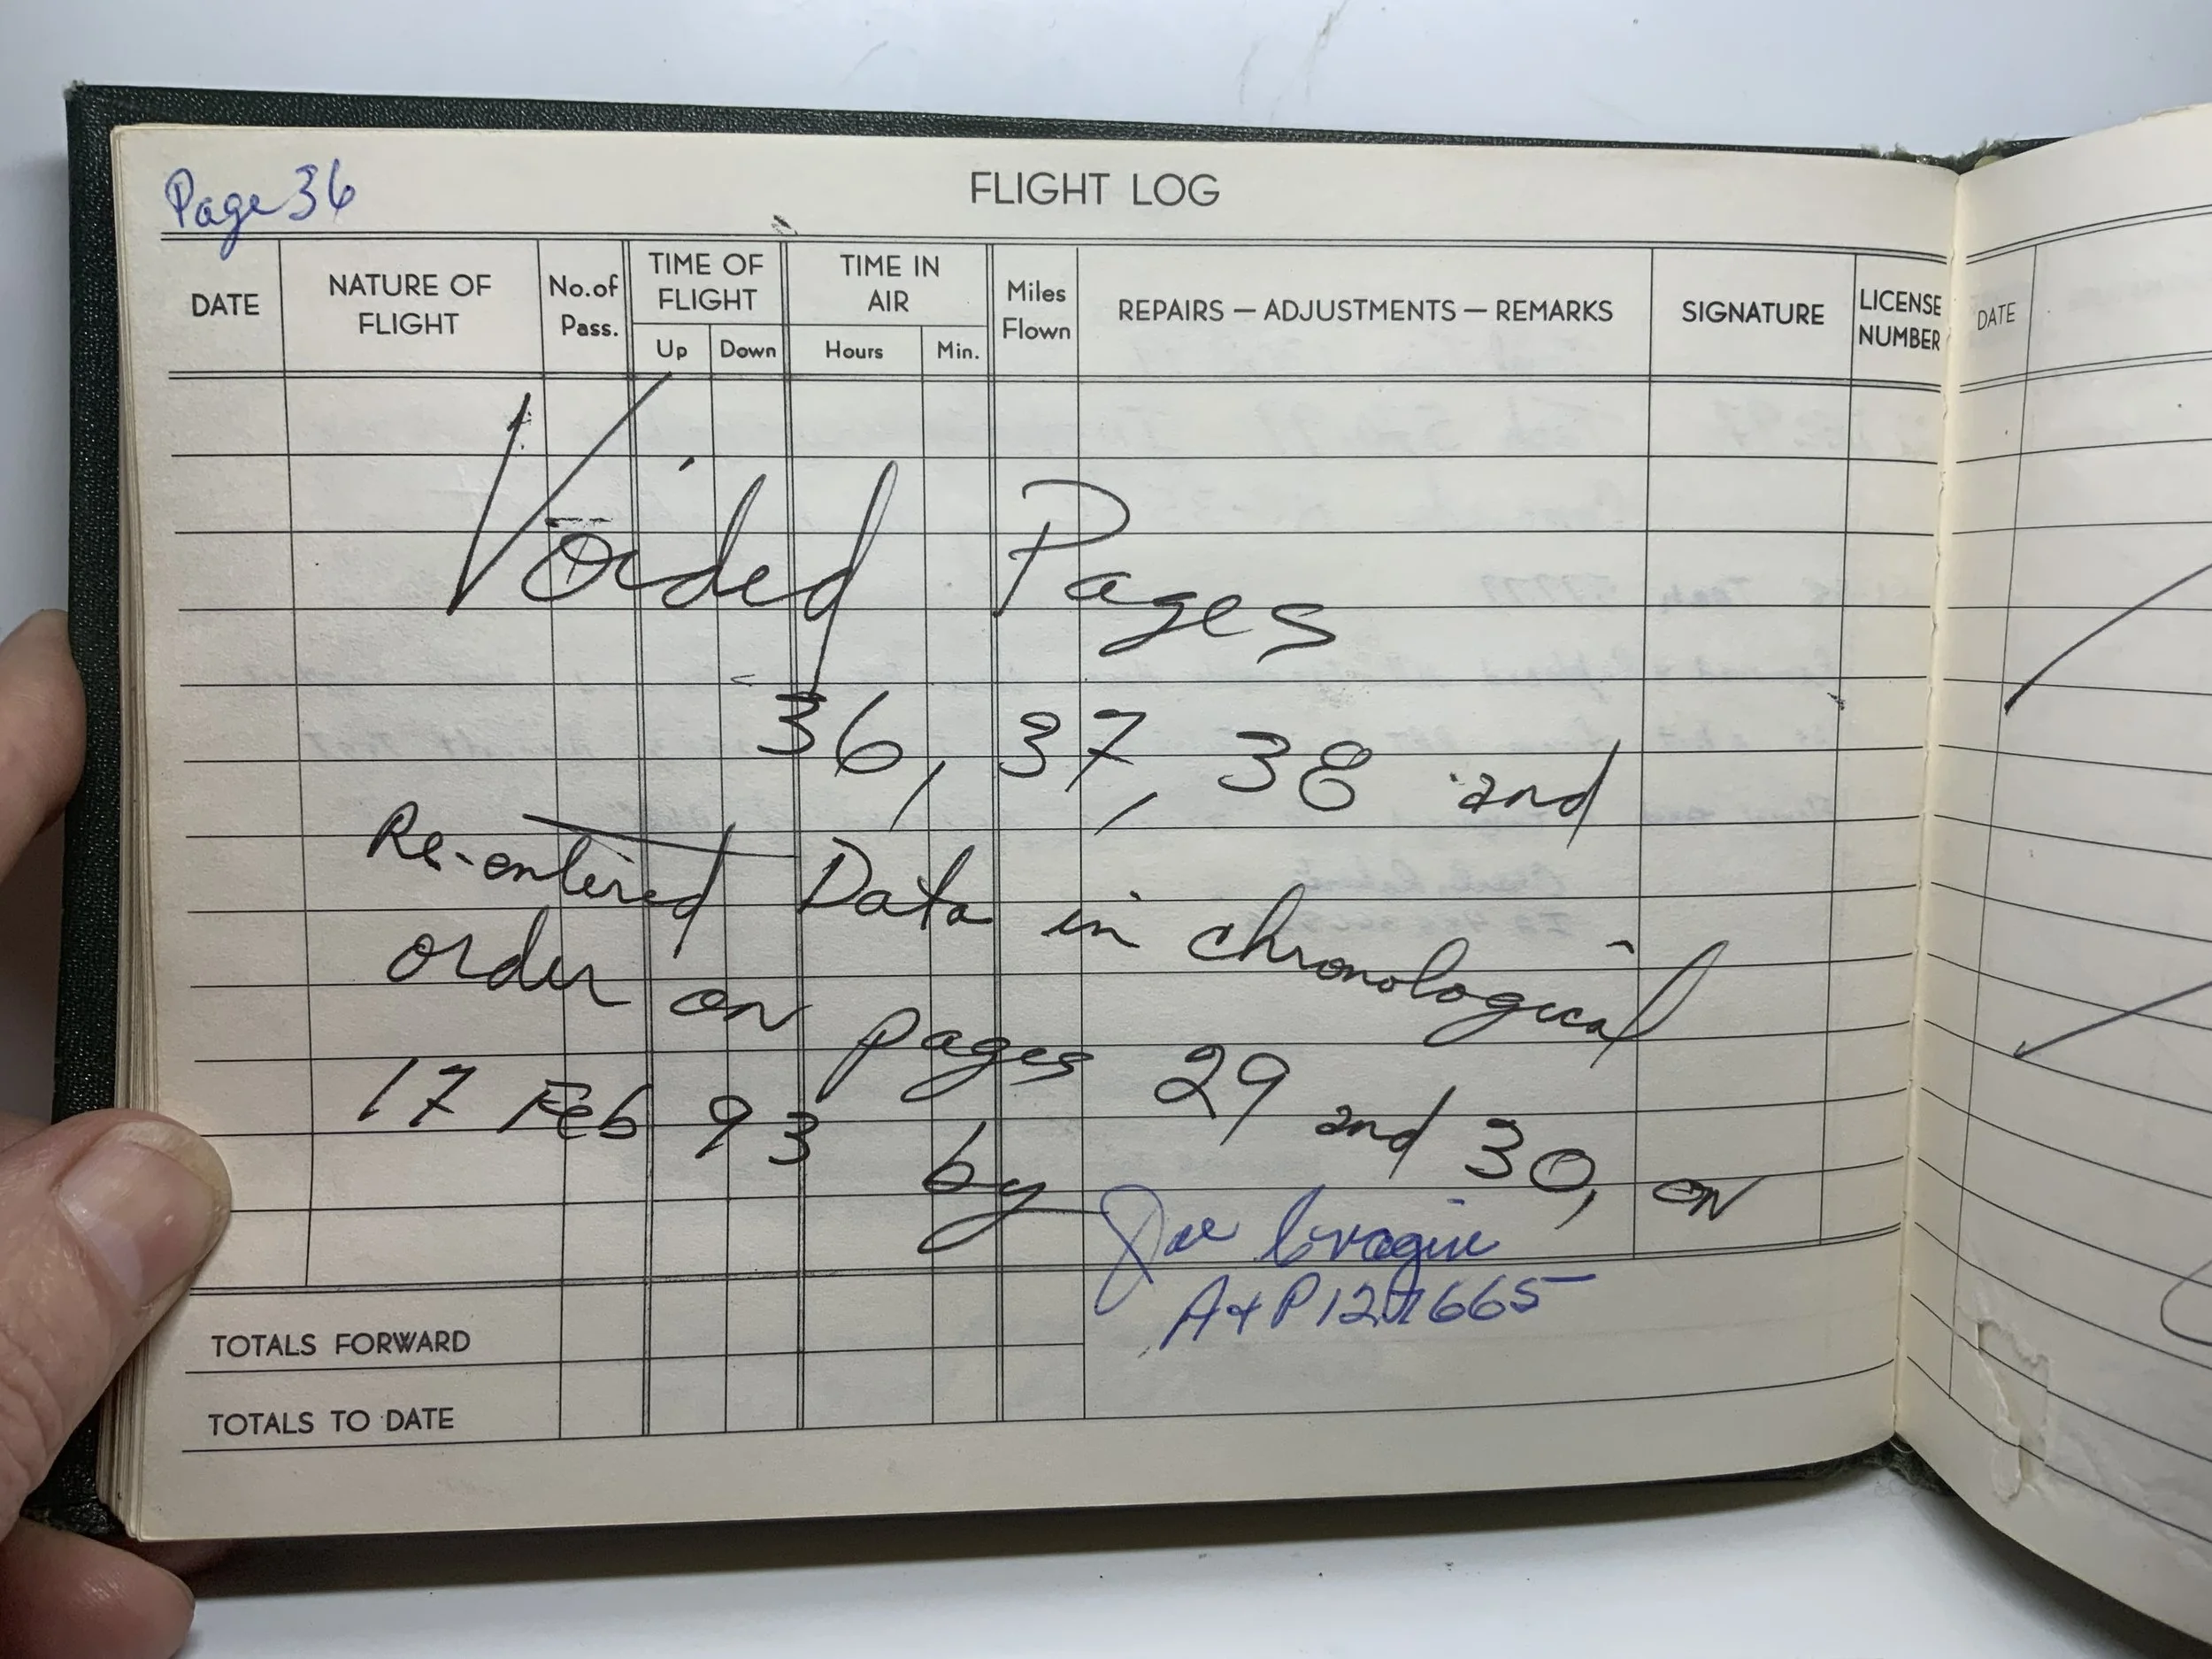 Page 36
FLIGHT LOG
DATE
NATURE OF FLIGHT
No. of Pass.
TIME OF FLIGHT
Up
Down
TIME IN AIR
Hours
Min.
Miles Flown
REPAIRS — ADJUSTMENTS — REMARKS
SIGNATURE
LICENSE NUMBER
DATE
Voided Pages
36, 37, 38 and
Re-entered Data in chronological
order on pages 29 and 30, on
17 Feb 93 by
Joe
A&P
TOTALS FORWARD
TOTALS TO DATE